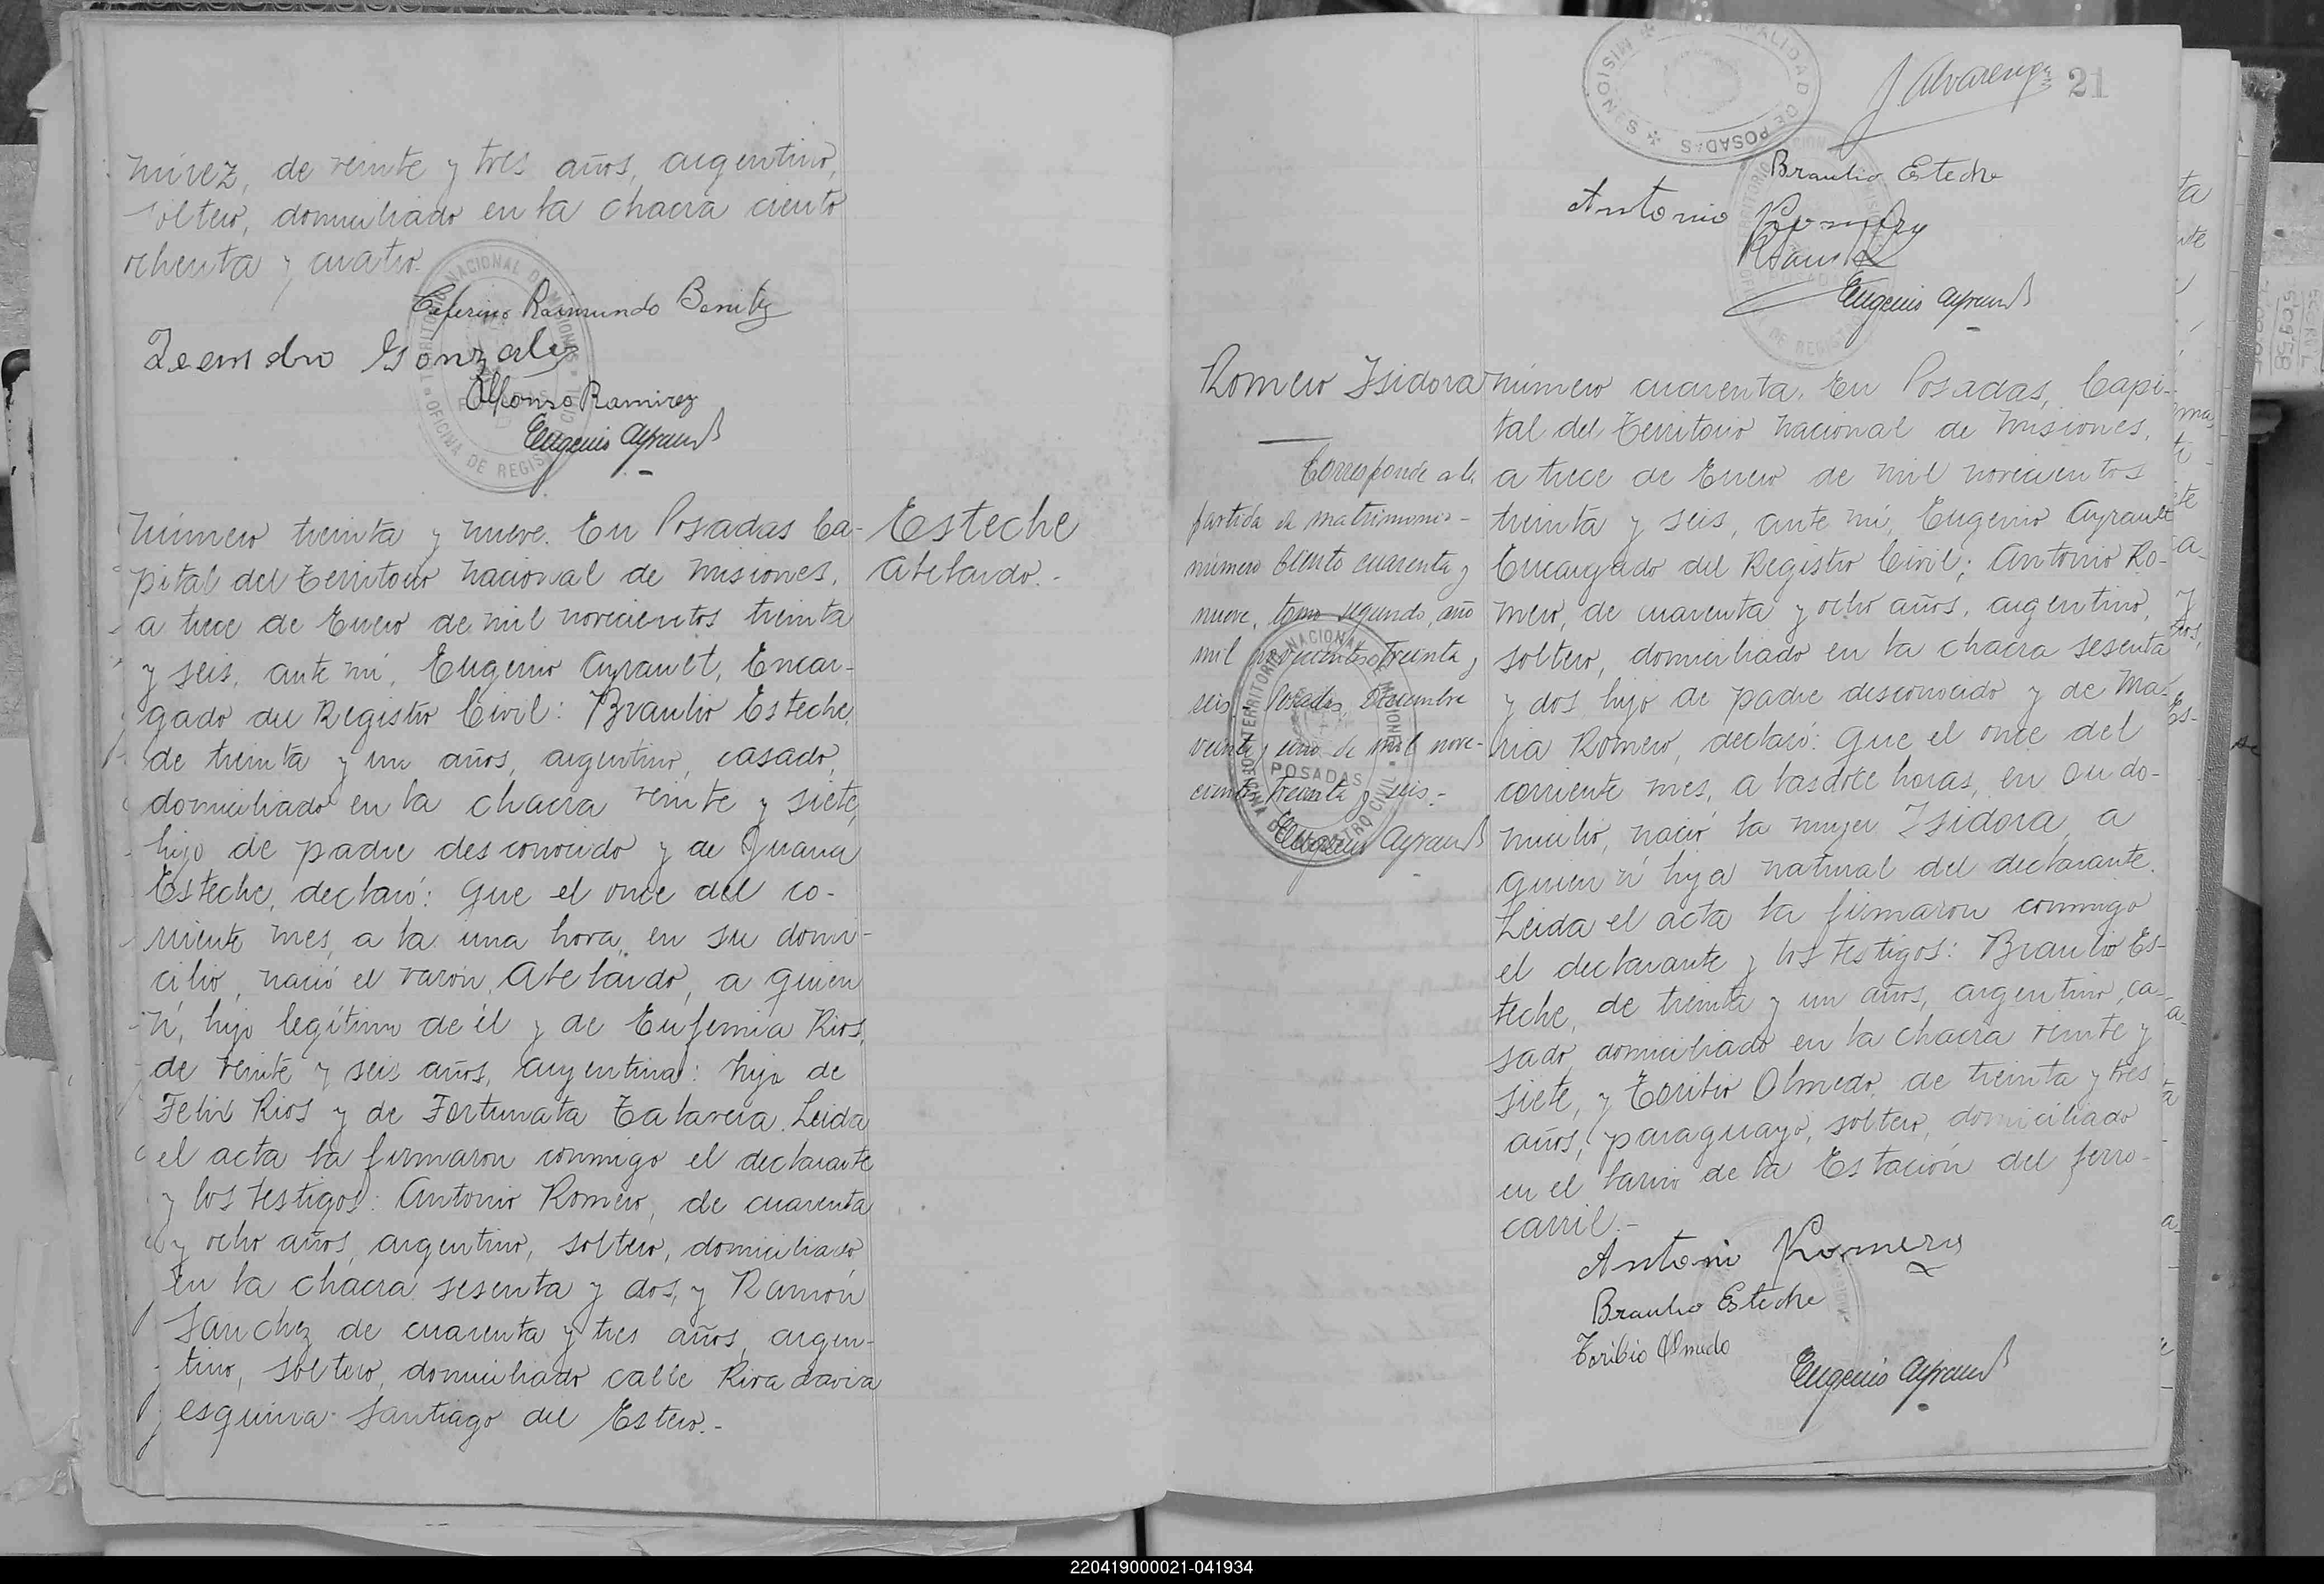 mirez, de veinte y tres años, argentino,
soltero, domiciliado en la chacra ciento
ochenta y cuatro.
Ceferino Raimundo Benitez
Leandro Gonzalez
Alfonso Ramirez
Eugenio Ayrault
Número treinta y nueve. En Posadas Ca-
pital del Territorio Nacional de Misiones,
a trece de Enero de mil novecientos treinta
y seis, ante mí, Eugenio Ayrault, Encar-
gado del Registro Civil: Braulio Esteche,
de treinta y un años, argentino, casado,
domiciliado en la chacra veinte y siete,
hijo de padre desconocido y de Juana
Esteche, declaró: Que el once del co-
rriente mes, a la una hora, en su domi-
cilio, nació el varón, Abelardo, a quien
ví, hijo legítimo de él y de Eufemia Rios,
de veinte y seis años, argentina: hija de
Felix Rios y de Fortunata Talavera. Leida
el acta la firmaron conmigo el declarante
y los testigos: Antonio Romero, de cuarenta
y ocho años, argentino, soltero, domiciliado
en la chacra sesenta y dos, y Ramón
Sanchez de cuarenta y tres años, argen-
tino, soltero, domiciliado calle Rivadavia
esquina Santiago del Estero.-
Esteche
Abelardo.-
MUNICIPALIDAD DE POSADAS
MISIONES
J Alvarenga
21
Braulio Esteche
Antonio Romero
Eugenio Ayrault
Romero Isidora
Corresponde a la
partida de matrimonio
número ciento cuarenta y
nueve, tomo segundo, año
mil novecientos treinta y
seis. Posadas, Diciembre
veinte y uno de mil nove-
cientos treinta y seis.-
Eugenio Ayrault
Número cuarenta. En Posadas, Capi-
tal del Territorio Nacional de Misiones,
a trece de Enero de mil novecientos
treinta y seis, ante mí, Eugenio Ayrault
Encargado del Registro Civil; Antonio Ro-
mero, de cuarenta y ocho años, argentino,
soltero, domiciliado en la chacra sesenta
y dos hijo de padre desconocido y de Ma-
ria Romero, declaró: Que el once del
corriente mes, a las doce horas, en su do-
micilio, nació la mujer Isidora, a
quien ví hija natural del declarante.
Leida el acta la firmaron conmigo
el declarante y los testigos: Braulio Es-
teche, de treinta y un años, argentino, ca-
sado, domiciliado en la chacra veinte y
siete, y Toribio Olmedo, de treinta y tres
años, paraguayo, soltero, domiciliado
en el barrio de la Estación del ferro-
carril.-
Antonio Romero
Braulio Esteche
Toribio Olmedo
Eugenio Ayrault
220419000021-041934